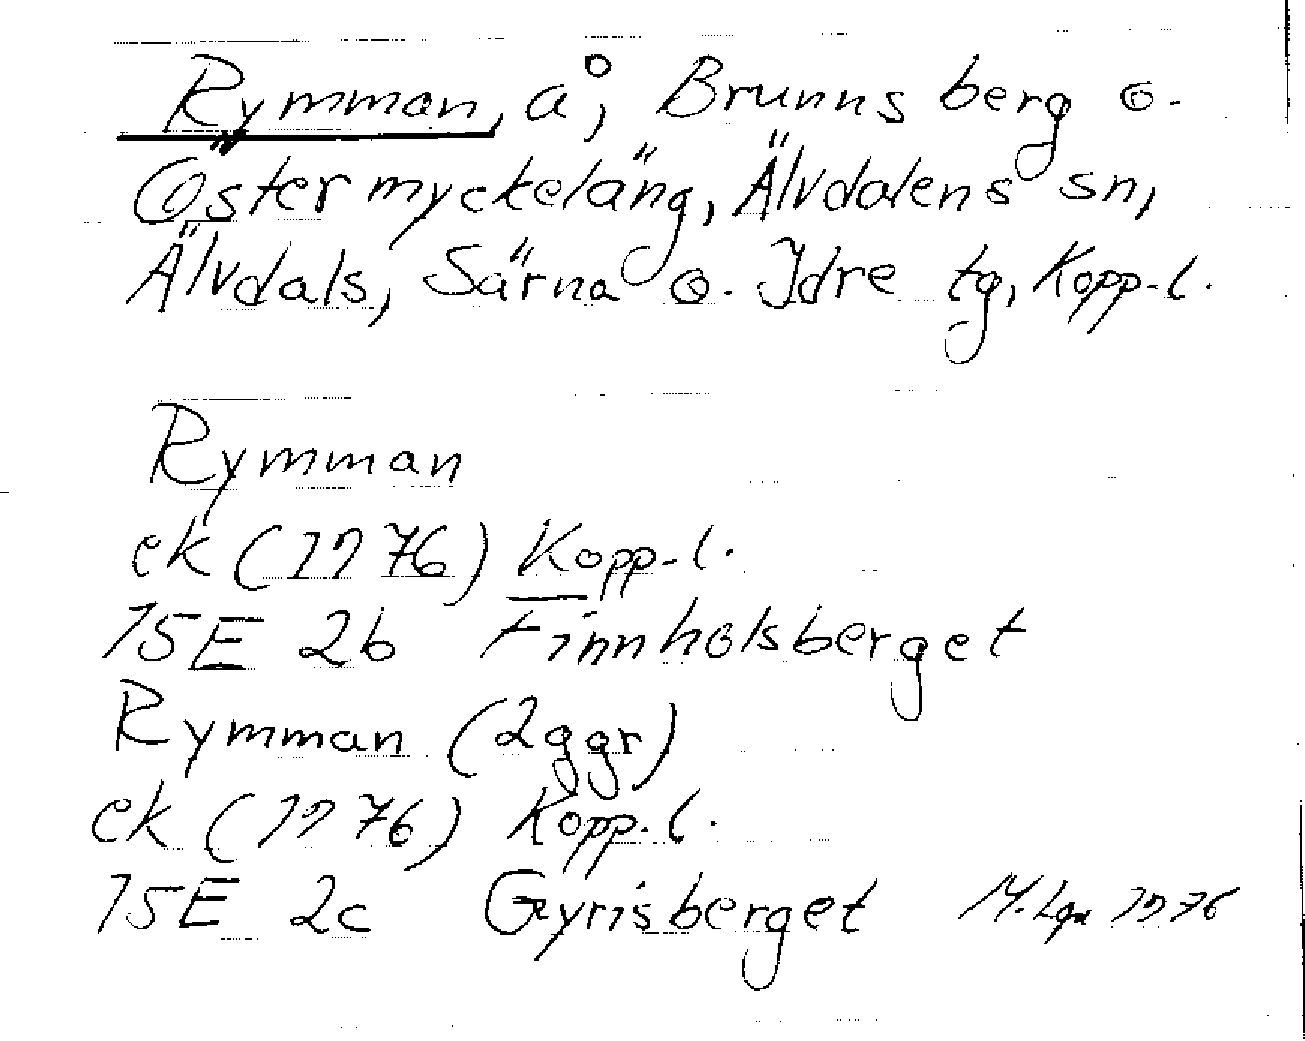 Rymman, å, Brunnsberg o.
Östermyckeläng, Älvdalens sn,
Älvdals, Särna o. Idre tg, Kopp.l.
Rymman
ek (1976) Kopp.l.
15E 2b Finnholsberget
Rymman (2 ggr)
ek (1976) Kopp.l.
15E 2c Gyrisberget 1976